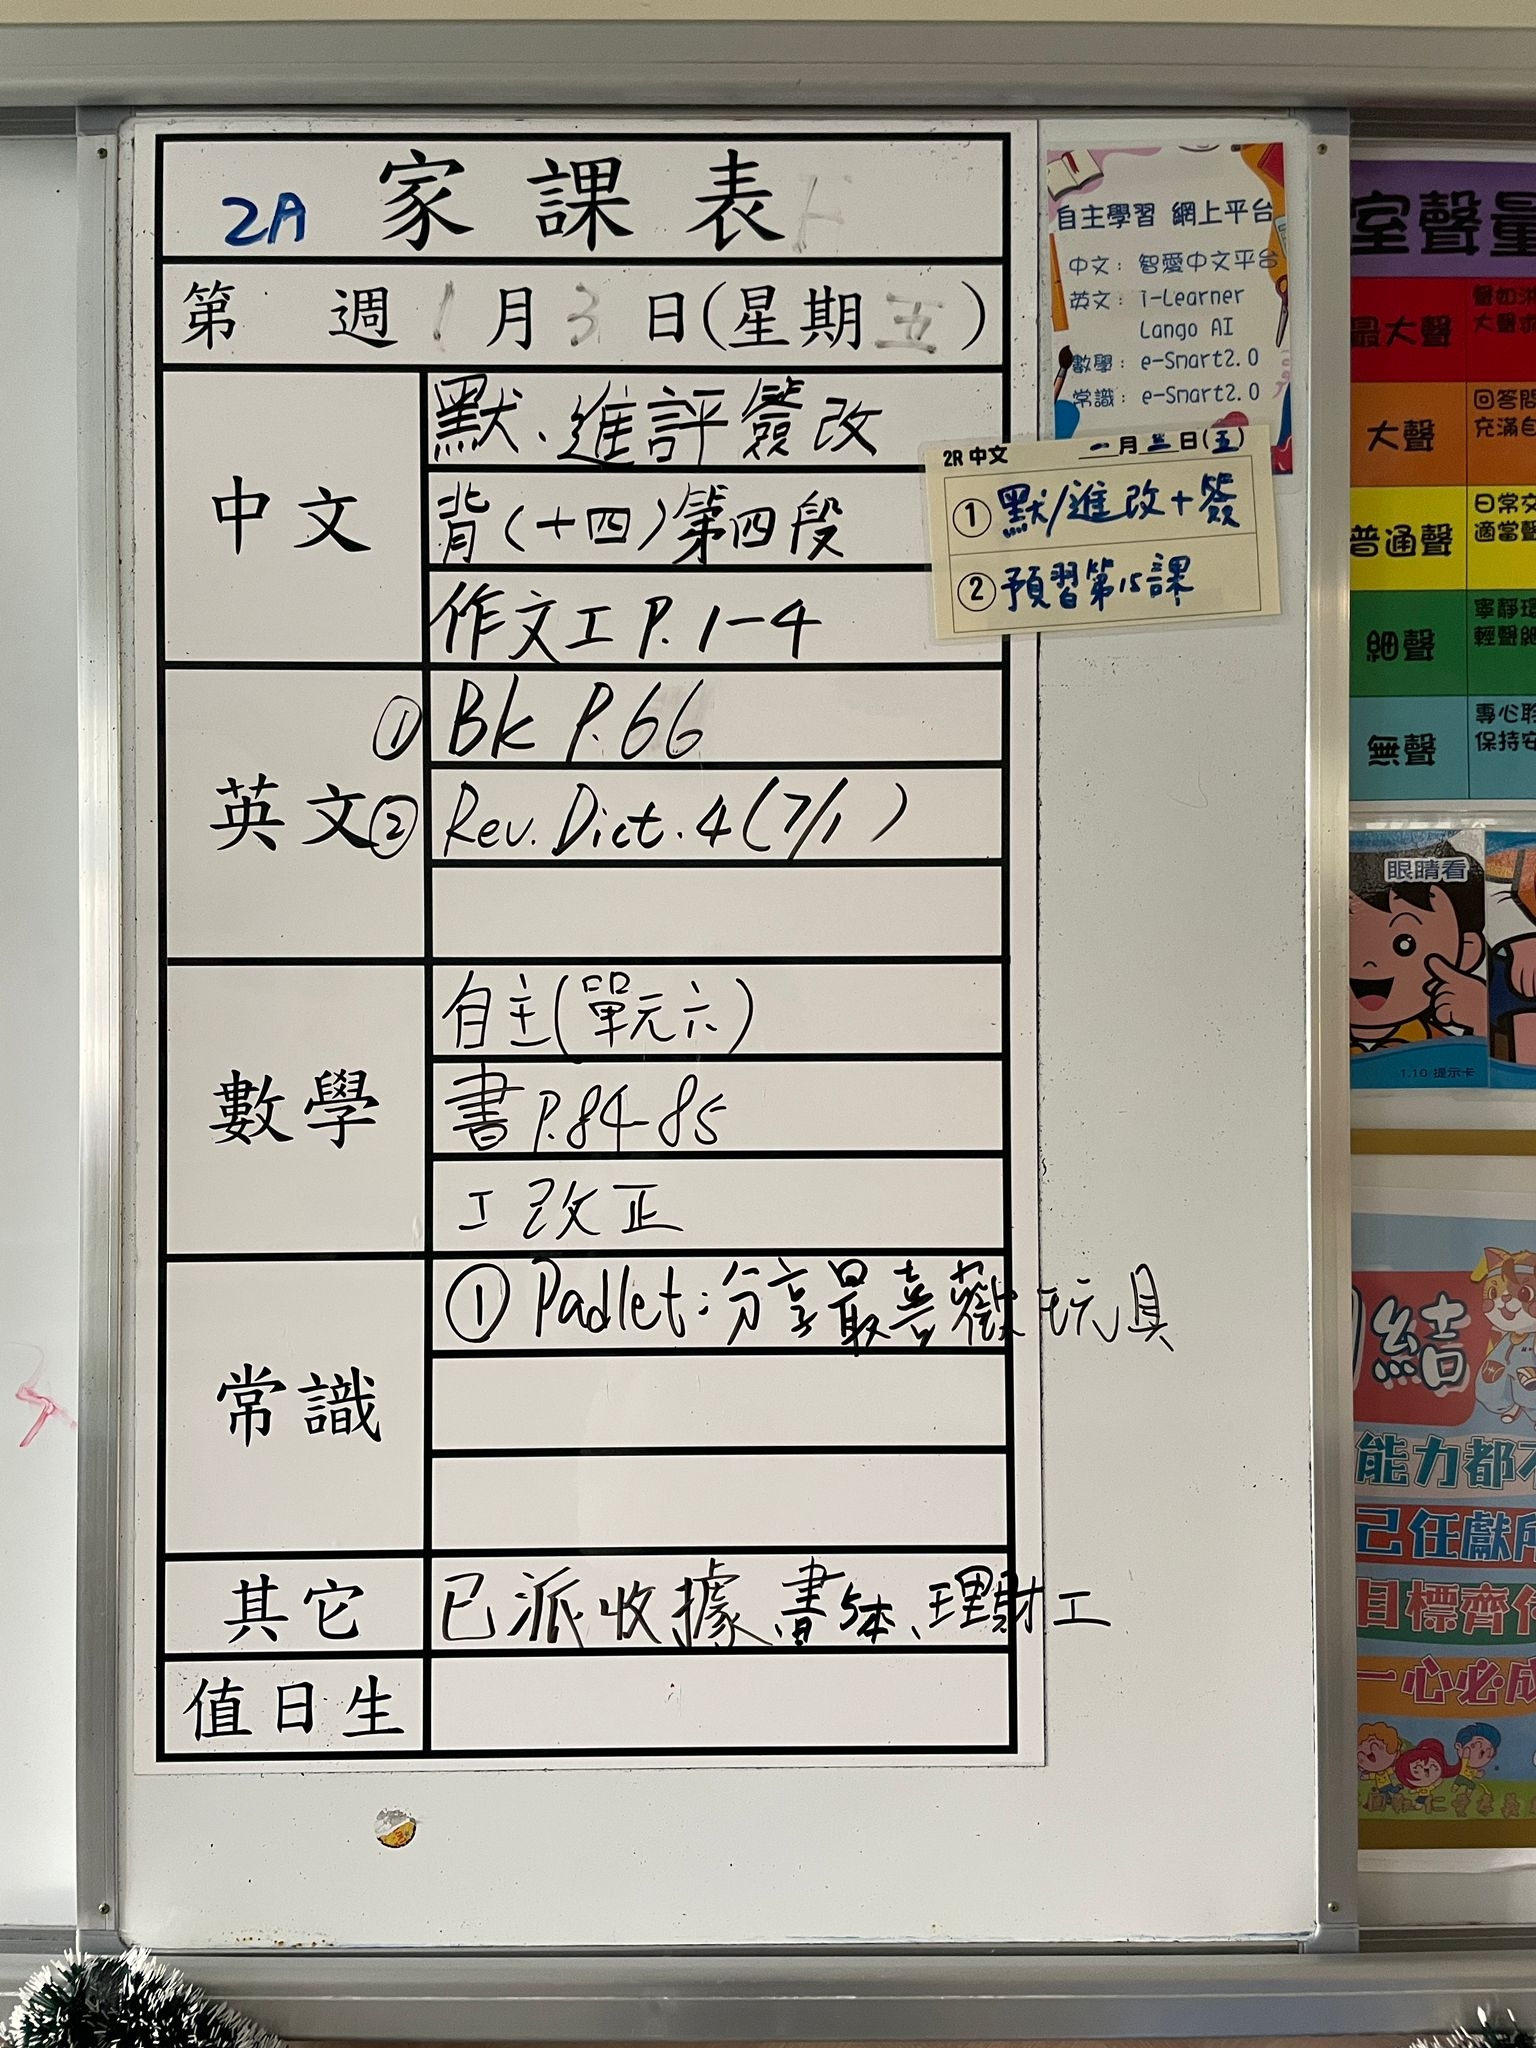 2A 家課表
第 週 1月3日(星期五)
中文
默、進評簽改
背(十四)第四段
作文工P.1-4
英文
① Bk P.66
② Rev. Dict. 4 (7/1)
數學
自主(單元六)
書P.84-85
工改正
常識
① Padlet:分享最喜歡玩具
其它
已派收據、書5本、理財工
值日生
自主學習 網上平台
中文: 智愛中文平台
英文: i-Learner
Lango AI
數學: e-Smart2.0
常識: e-Smart2.0
2R 中文 一月三日(五)
① 默/進改+簽
② 預習第15課
室聲量
最大聲
大聲
回答問
充滿自
普通聲
日常交
適當聲
細聲
寧靜環
輕聲細
無聲
專心聆
保持安
眼睛看
1.10 提示卡
結
能力都不
己任獻所
目標齊
一心必成